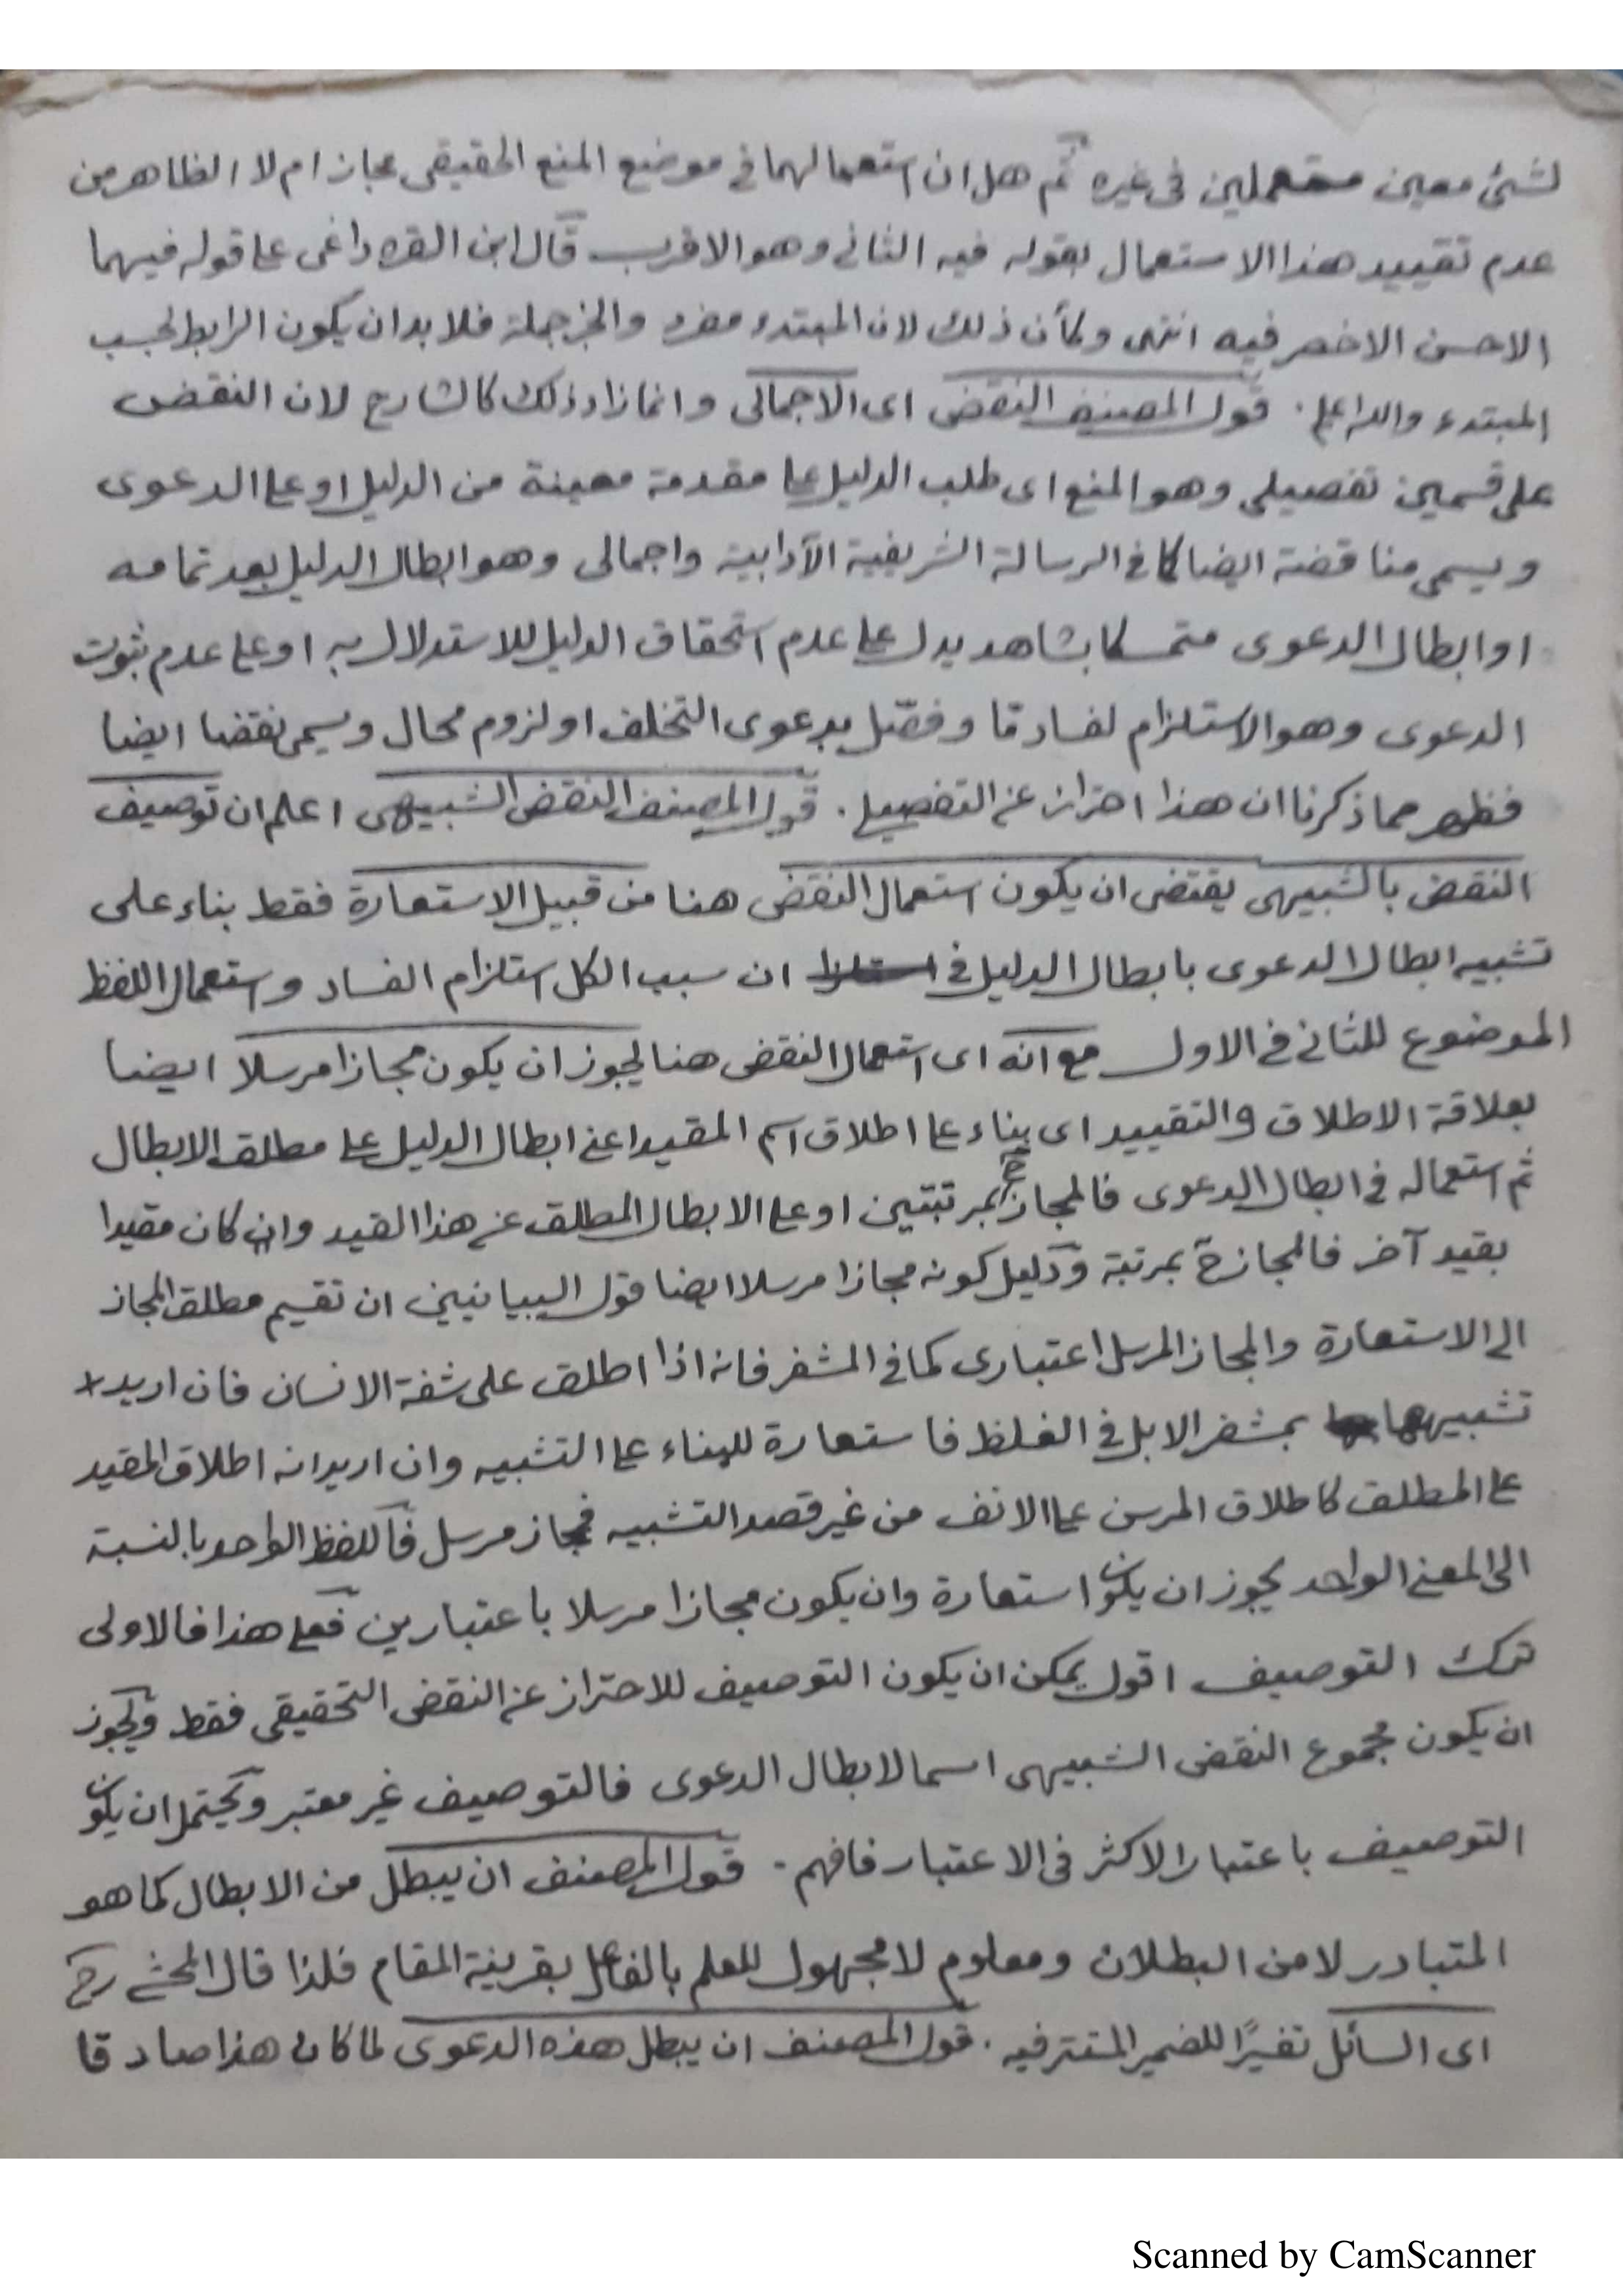 لشئ معين مستعملين فى غيره ثم هل ان استعمالهما فى موضع المنع الحقيقى مجاز ام لا الظاهر من
عدم تقييد هذا الاستعمال بقوله فيه الثانى وهو الاقرب قال ابن القره داغى على قوله فيهما
الاحسن الاخصر فيه انتهى وكأن ذلك لان المبتدء مفرد والخبر جملة فلا بد ان يكون الرابط بحسب
المبتدء والله اعلم . قول المصنف النقض اى الاجمالى وانما زاد ذلك كالشارح لان النقض
على قسمين تفصيلى وهو المنع اى طلب الدليل على مقدمة معينة من الدليل او على الدعوى
ويسمى مناقضة ايضا كما فى الرسالة الشريفية الآدابية واجمالى وهو ابطال الدليل بعد تمامه
او ابطال الدعوى متمسكا بشاهد يدل على عدم استحقاق الدليل للاستدلال به او على عدم ثبوت
الدعوى وهو الاستلزام لفساد ما وفصّل بدعوى التخلف او لزوم محال ويسمى نقضا ايضا
فظهر مما ذكرنا ان هذا احتراز عن التفصيلى . قول المصنف النقض الشبيهى اعلم ان توصيف
النقض بالشبيهى يقتضى ان يكون استعمال النقض هنا من قبيل الاستعارة فقط بناء على
تشبيه ابطال الدعوى بابطال الدليل فى ان سبب الكل استلزام الفساد واستعمال اللفظ
الموضوع للثانى فى الاول مع انه اى استعمال النقض هنا يجوز ان يكون مجازا مرسلا ايضا
بعلاقة الاطلاق والتقييد اى بناء على اطلاق اسم المقيد اعنى ابطال الدليل على مطلق الابطال
ثم استعماله فى ابطال الدعوى فالمجاز ح بمرتبتين او على الابطال المطلق عن هذا القيد وان كان مقيدا
بقيد آخر فالمجاز ح بمرتبة ودليل كونه مجازا مرسلا ايضا قول البيانيين ان تقسيم مطلق المجاز
الى الاستعارة والمجاز المرسل اعتبارى كما فى المشفر فانه اذا اطلق على شفة الانسان فان اريد
تشبيهها بمشفر الابل فى الغلظ فاستعارة للبناء على التشبيه وان اريد انه اطلاق المقيد
على المطلق كاطلاق المرسن على الانف من غير قصد التشبيه فمجاز مرسل فاللفظ الواحد بالنسبة
الى المعنى الواحد يجوز ان يكون استعارة وان يكون مجازا مرسلا باعتبارين فعلى هذا فالاولى
ترك التوصيف اقول يمكن ان يكون التوصيف للاحتراز عن النقض التحقيقى فقط ويجوز
ان يكون مجموع النقض الشبيهى اسما لابطال الدعوى فالتوصيف غير معتبر ويحتمل ان يكون
التوصيف باعتبار الاكثر فى الاعتبار فافهم . قول المصنف ان يبطل من الابطال كما هو
المتبادر لا من البطلان ومعلوم لا مجهول للعلم بالفاعل بقرينة المقام فلذا قال المحشى رح
اى السائل تفسيرًا للضمير المستتر فيه . قول المصنف ان يبطل هذه الدعوى لما كان هذا صادقا
Scanned by CamScanner